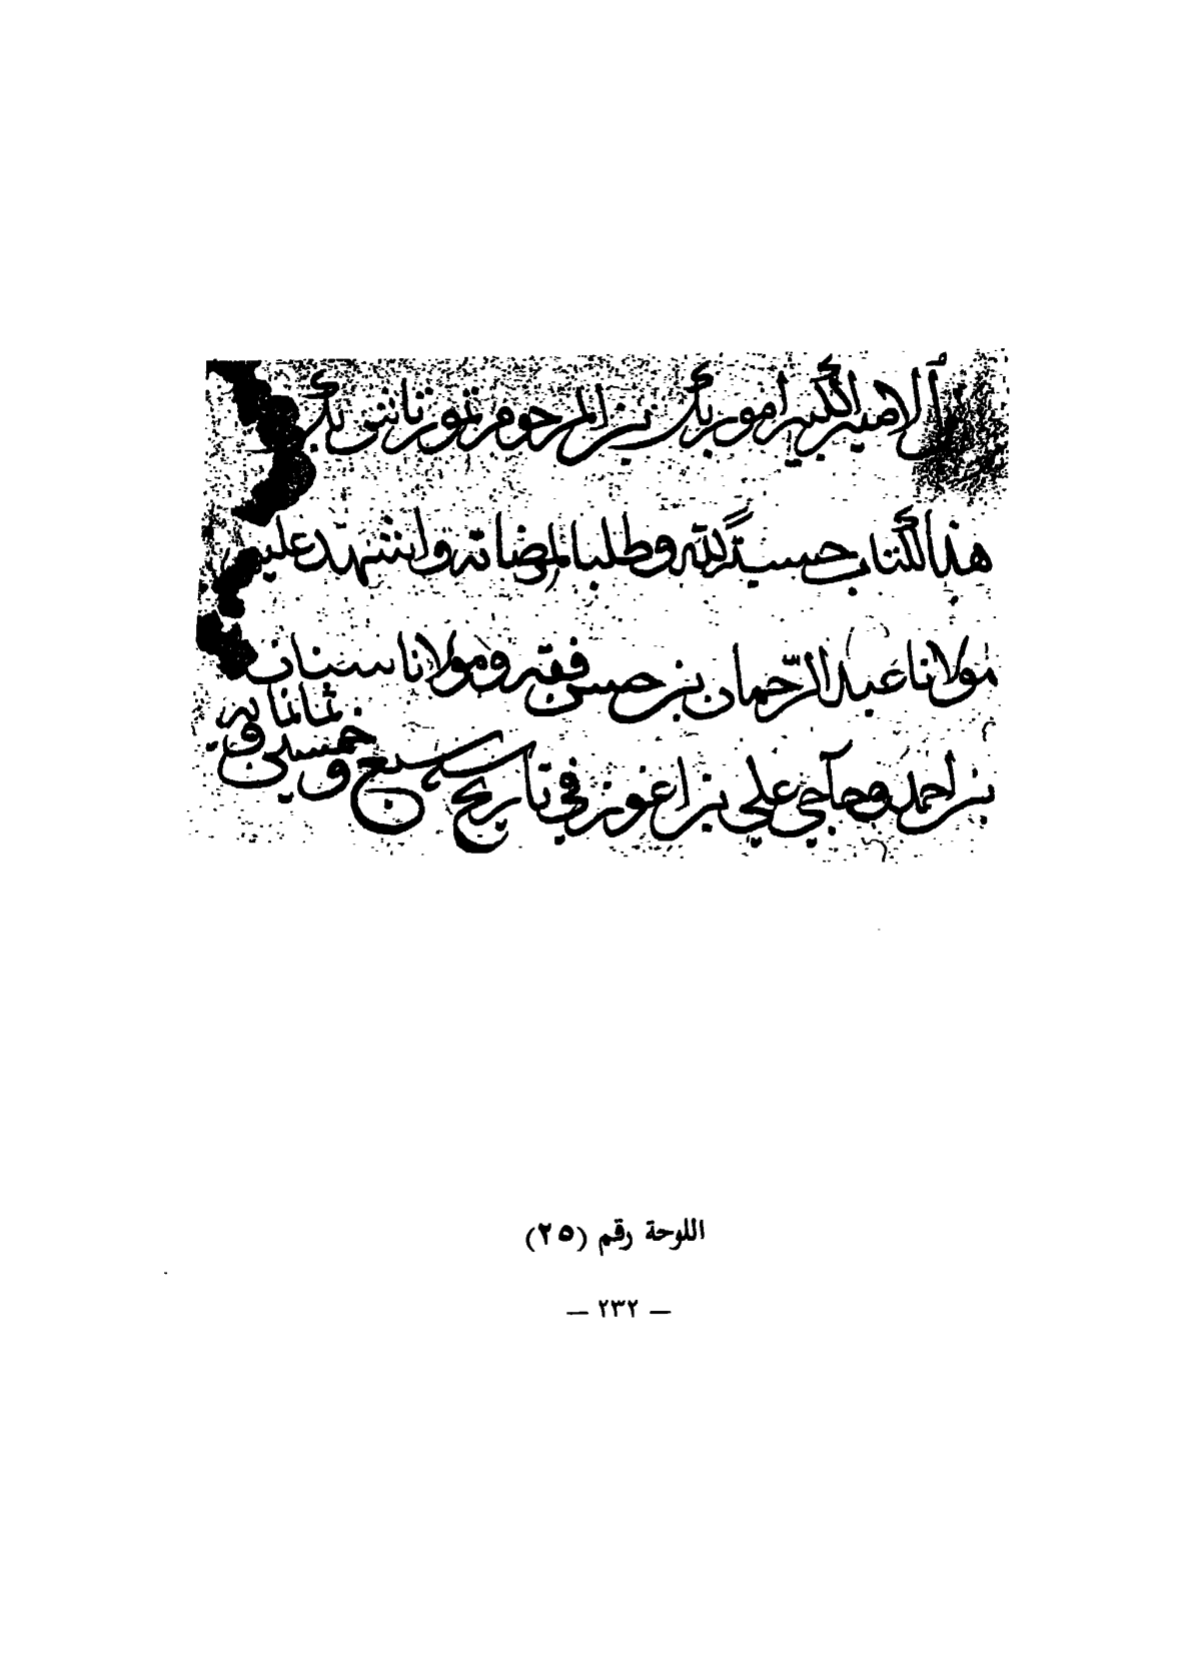 الامير الكبير امور بك بن المرحوم تمورتاش بك
هذا الكتاب حسبة لله وطلبا لمرضاته واشهد عليه
مولانا عبد الرّحمان بن حسن فقيه ومولانا سنان
بن احمد وحاجي علي بن اغوز في تاريخ سنة سبع وخمسين وثمانمايه
اللوحة رقم (٢٥)
— ٢٣٢ —